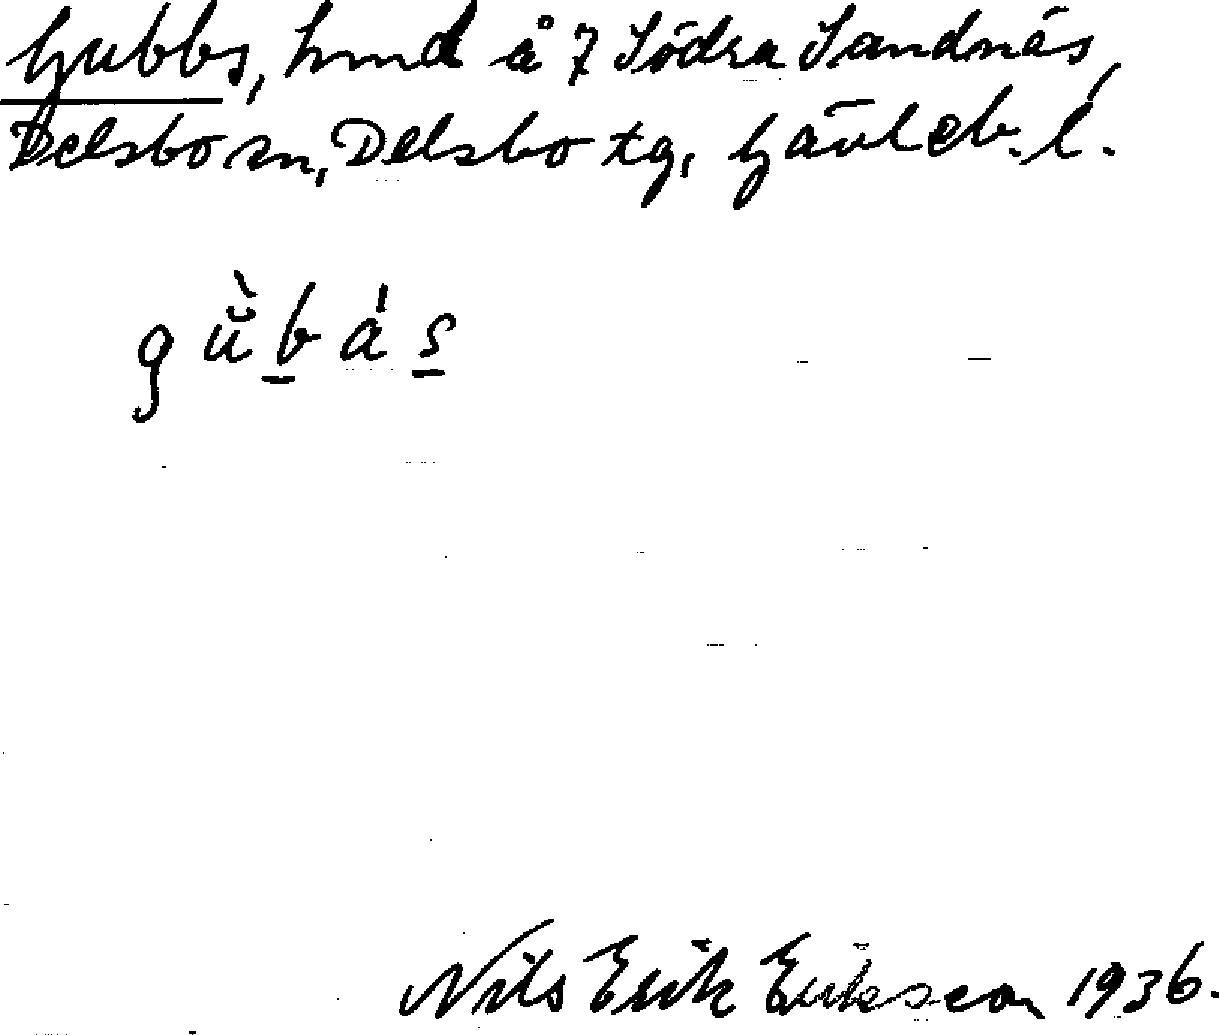 Gubbs, hmd å 7 Södra Sandnäs,
Delsbo sn, Delsbo tg, Gävleb. l.
Nils Erik Eriksson 1936.